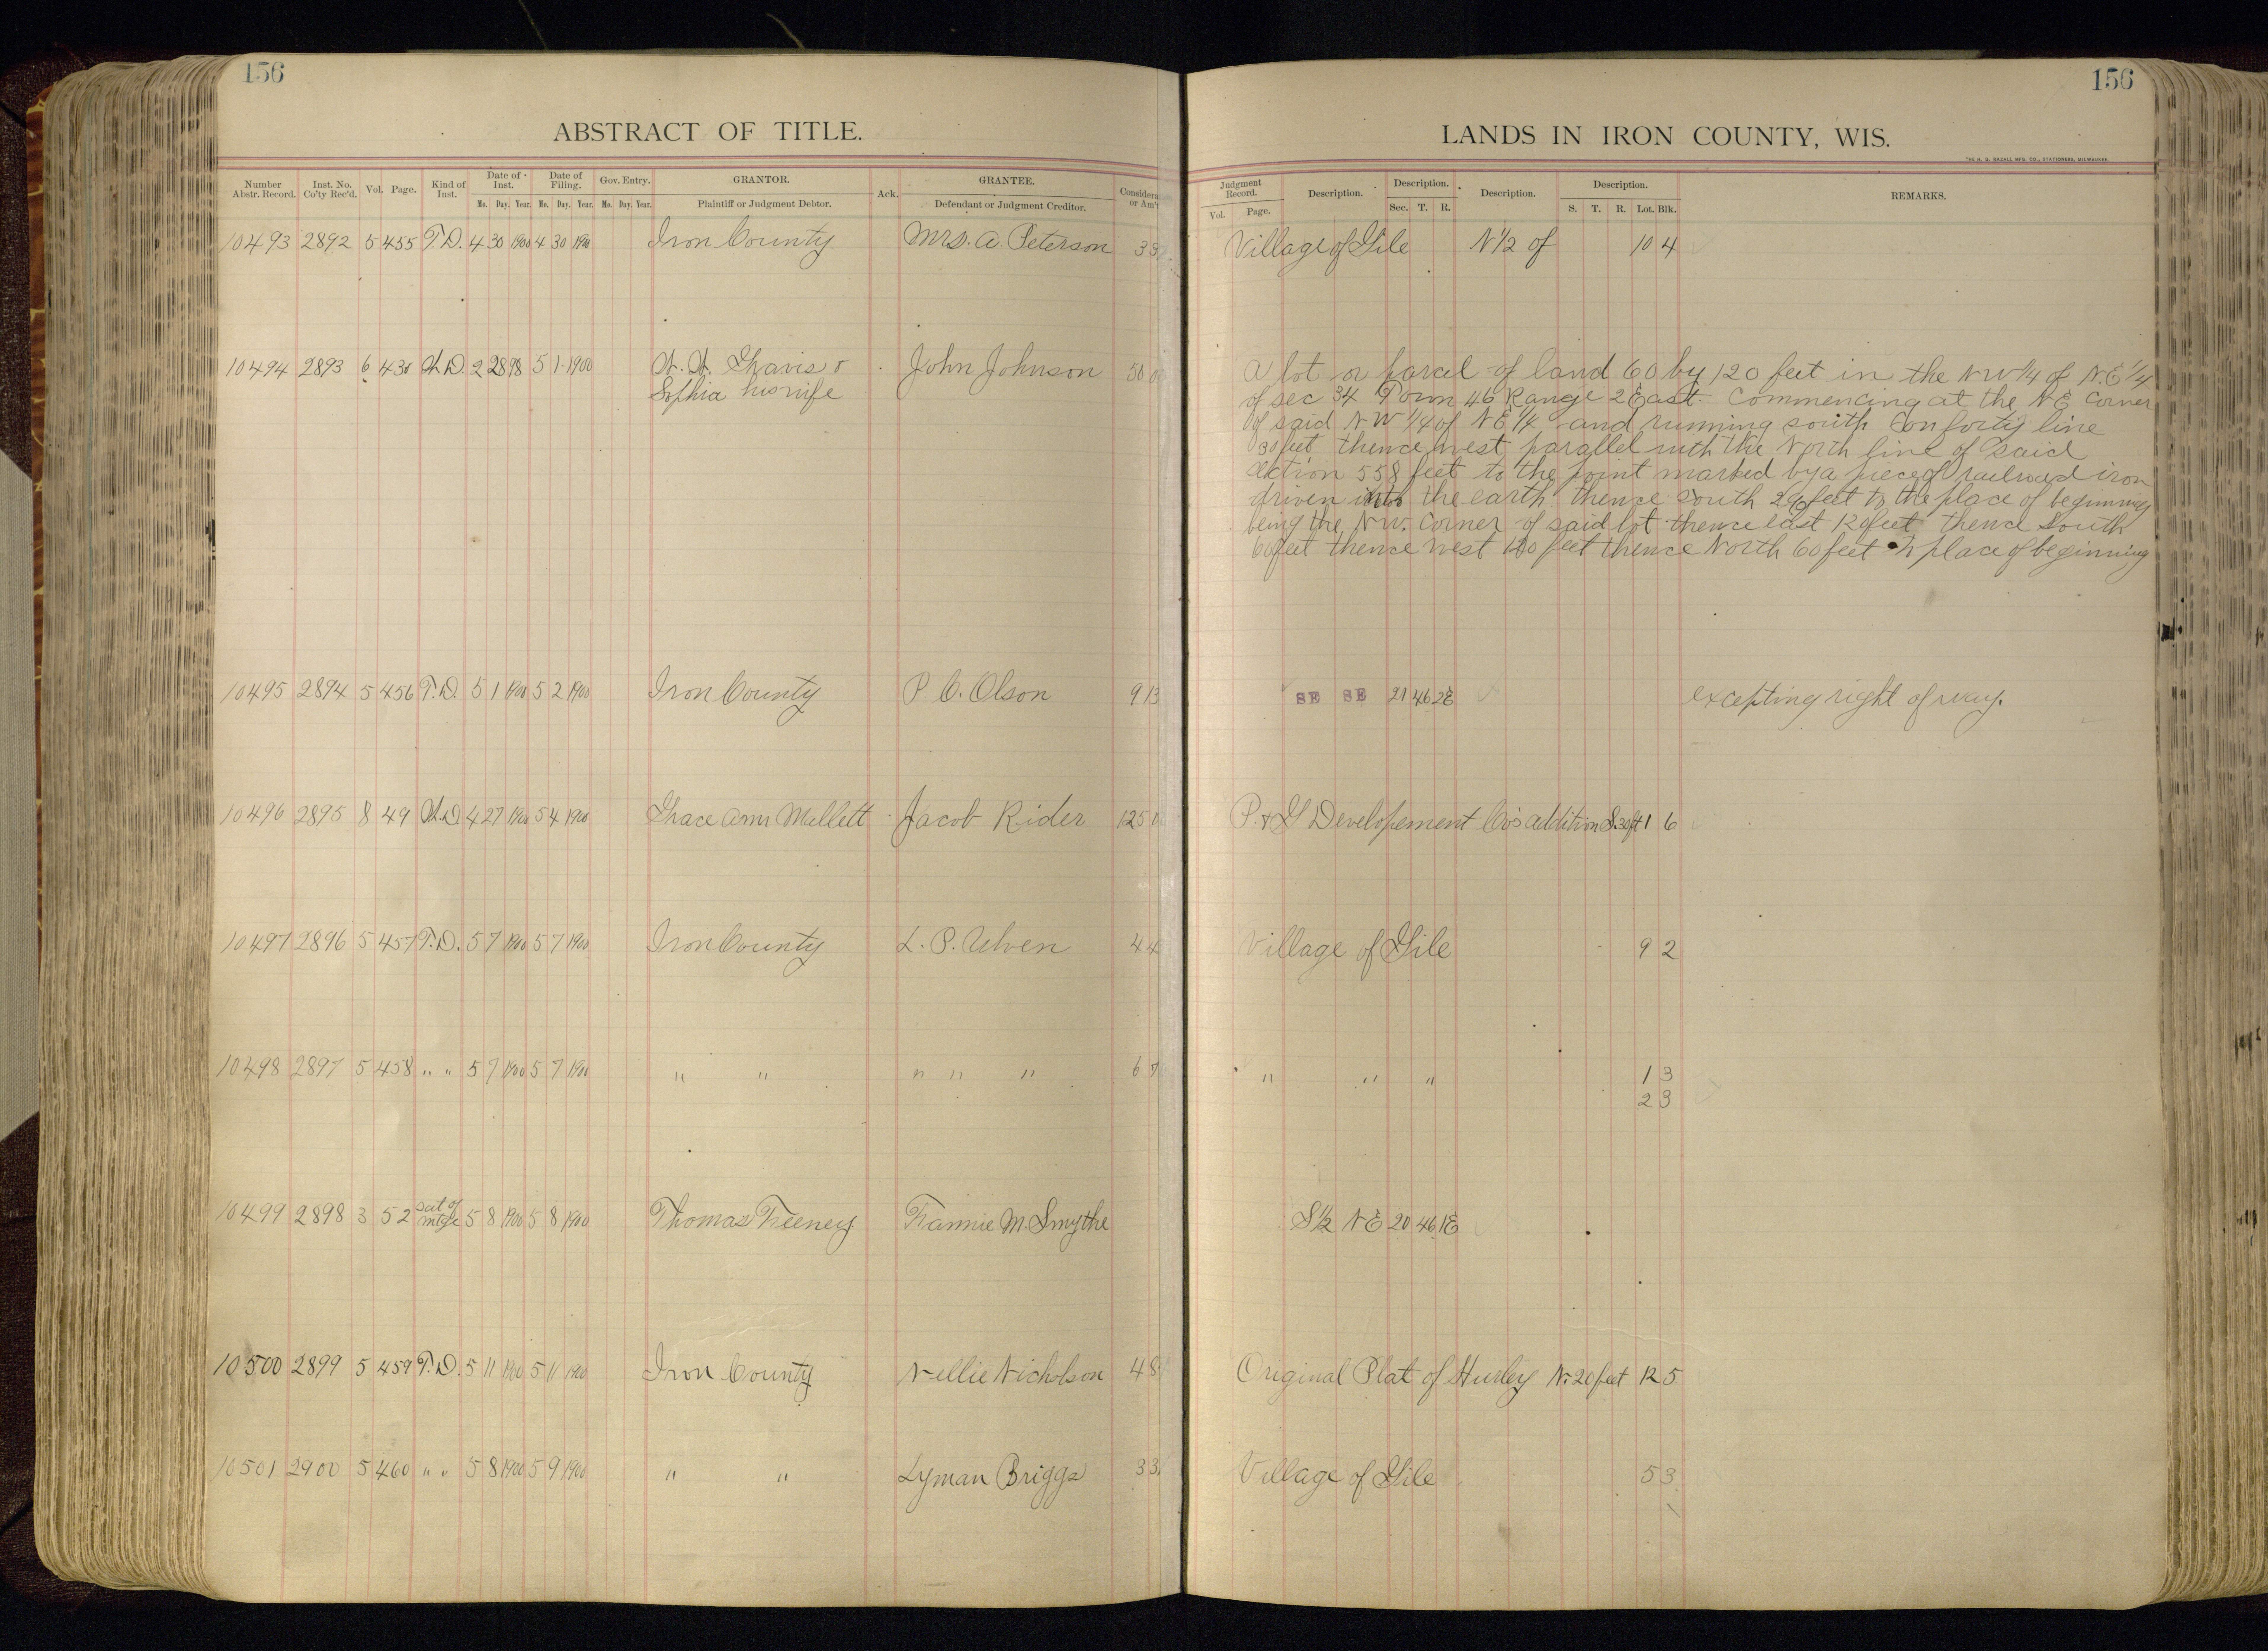 156
ABSTRACT OF TITLE.
Number Abstr. Record. Inst. No. Co'ty Rec'd. Vol. Page. Kind of Inst. Date of Inst. Date of Filing. Gov. Entry. GRANTOR. Ack. GRANTEE. Consider or Am't
Mo. Day. Year. Mo. Day. Year. Mo. Day. Year. Plaintiff or Judgment Debtor. Defendant or Judgment Creditor.
10493 2892 5 455 T.D. 4 30 1900 4 30 1900 Iron County Mrs. A. Peterson 33
10494 2893 6 430 W.D. 2 28 98 5 1 1900 John Johnson 50 00
Sophia his wife
10495 2894 5 456 T.D. 5 1 1900 5 2 1900 Iron County P. C. Olson 9 13
10496 2895 8 49 W.D 4 27 1900 5 4 1900 Grace Ann Mellett Jacob Rider 125 0
10497 2896 5 457 T.D. 5 7 1900 5 7 1900 Iron County L. P. Ulven 4 4
10498 2897 5 458 " " 5 7 1900 5 7 1900 " " " " " 6 7
10499 2898 3 52 sat of mtge 5 8 1900 5 8 1900 Thomas Feeney Fannie M. Smythe
10500 2899 5 459 T.D. 5 11 1900 5 11 1900 Iron County Nellie Nicholson 4 8
10501 2900 5 460 " " 5 8 1900 5 9 1900 " " Lyman Briggs 3 3
156
LANDS IN IRON COUNTY, WIS.
THE H. G. RAZALL MFG. CO., STATIONERS, MILWAUKEE.
Judgment Record. Description. Description. Description. Description. REMARKS.
Vol. Page. Sec. T. R. S. T. R. Lot. Blk.
Village of Gile N 1/2 of 10 4
A lot or parcel of land 60 by 120 feet in the NW 1/4 of N.E 1/4
of sec 34 Town 46 Range 2 East. Commencing at the N E Corner
of said N W 1/4 of N E 1/4 and running south on forty line
30 feet thence west parallel with the North line of said
section 558 feet to the point marked by a piece of railroad iron
driven into the earth thence south 290 feet to the place of beginning
being the N W. Corner of said lot thence east 120 feet thence South
60 feet thence west 120 feet thence North 60 feet to place of beginning
SE SE 21 46 2E excepting right of way.
P. & G Developement Co's addition S. 30 ft 1 6
Village of Gile 9 2
" " " 1 3
2 3
S 1/2 N E 20 46 1E
Original Plat of Hurley N. 20 feet 12 5
Village of Gile 5 3